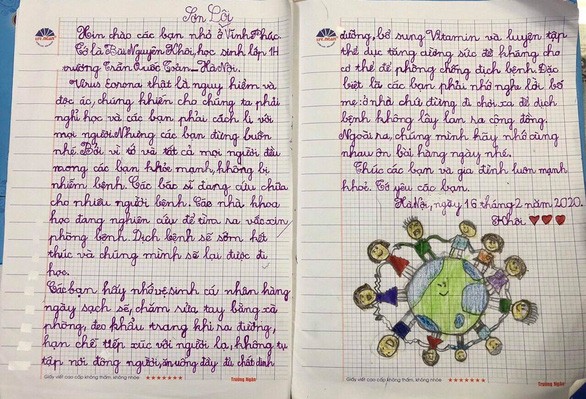 Sơn Lôi
Xin chào các bạn nhỏ ở Vĩnh Phúc.
Tớ là Bùi Nguyên Khôi, học sinh lớp 1H
trường Trần Quốc Toản - Hà Nội.
Virus Corona thật là nguy hiểm và
độc ác, chúng khiến cho chúng ta phải
nghỉ học và các bạn phải cách li với
mọi người. Nhưng các bạn đừng buồn
nhé. Bởi vì tớ và tất cả mọi người đều
mong các bạn khỏe mạnh, không bị
nhiễm bệnh. Các bác sĩ đang cứu chữa
cho nhiều người bệnh. Các nhà khoa
học đang nghiên cứu để tìm ra vắc xin
phòng bệnh. Dịch bệnh sẽ sớm kết
thúc và chúng mình sẽ lại được đi
học.
Các bạn hãy nhớ vệ sinh cá nhân hàng
ngày sạch sẽ, chăm rửa tay bằng xà
phòng, đeo khẩu trang khi ra đường,
hạn chế tiếp xúc với người lạ, không tụ
tập nơi đông người, ăn uống đầy đủ chất dinh
Giấy viết cao cấp không thấm, không nhòe
Trường Ngân
dưỡng, bổ sung Vitamin và luyện tập
thể dục tăng cường sức đề kháng cho
cơ thể để phòng chống dịch bệnh. Đặc
biệt là các bạn phải nhớ nghe lời bố
mẹ: ở nhà chứ đừng đi chơi xa để dịch
bệnh không lây lan ra cộng đồng.
Ngoài ra, chúng mình hãy nhớ cùng
nhau ôn bài hàng ngày nhé.
Chúc các bạn và gia đình luôn mạnh
khỏe. Tớ yêu các bạn.
Hà Nội, ngày 16 tháng 2 năm 2020.
Khôi
Giấy viết cao cấp không thấm, không nhòe
Trường Ngân